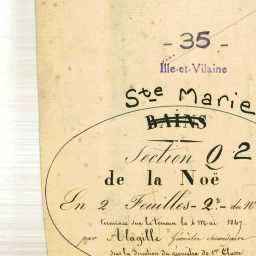 - 35 -
Ille-et-Vilaine
Ste Marie
BAINS
Section Q 2
de la Noë
En 2 Feuilles - 2e - du
terminée sur le terrain le 6 Mai 1847
par Alagille Géomètre secondaire
sous la direction du géomètre de 1re Classe